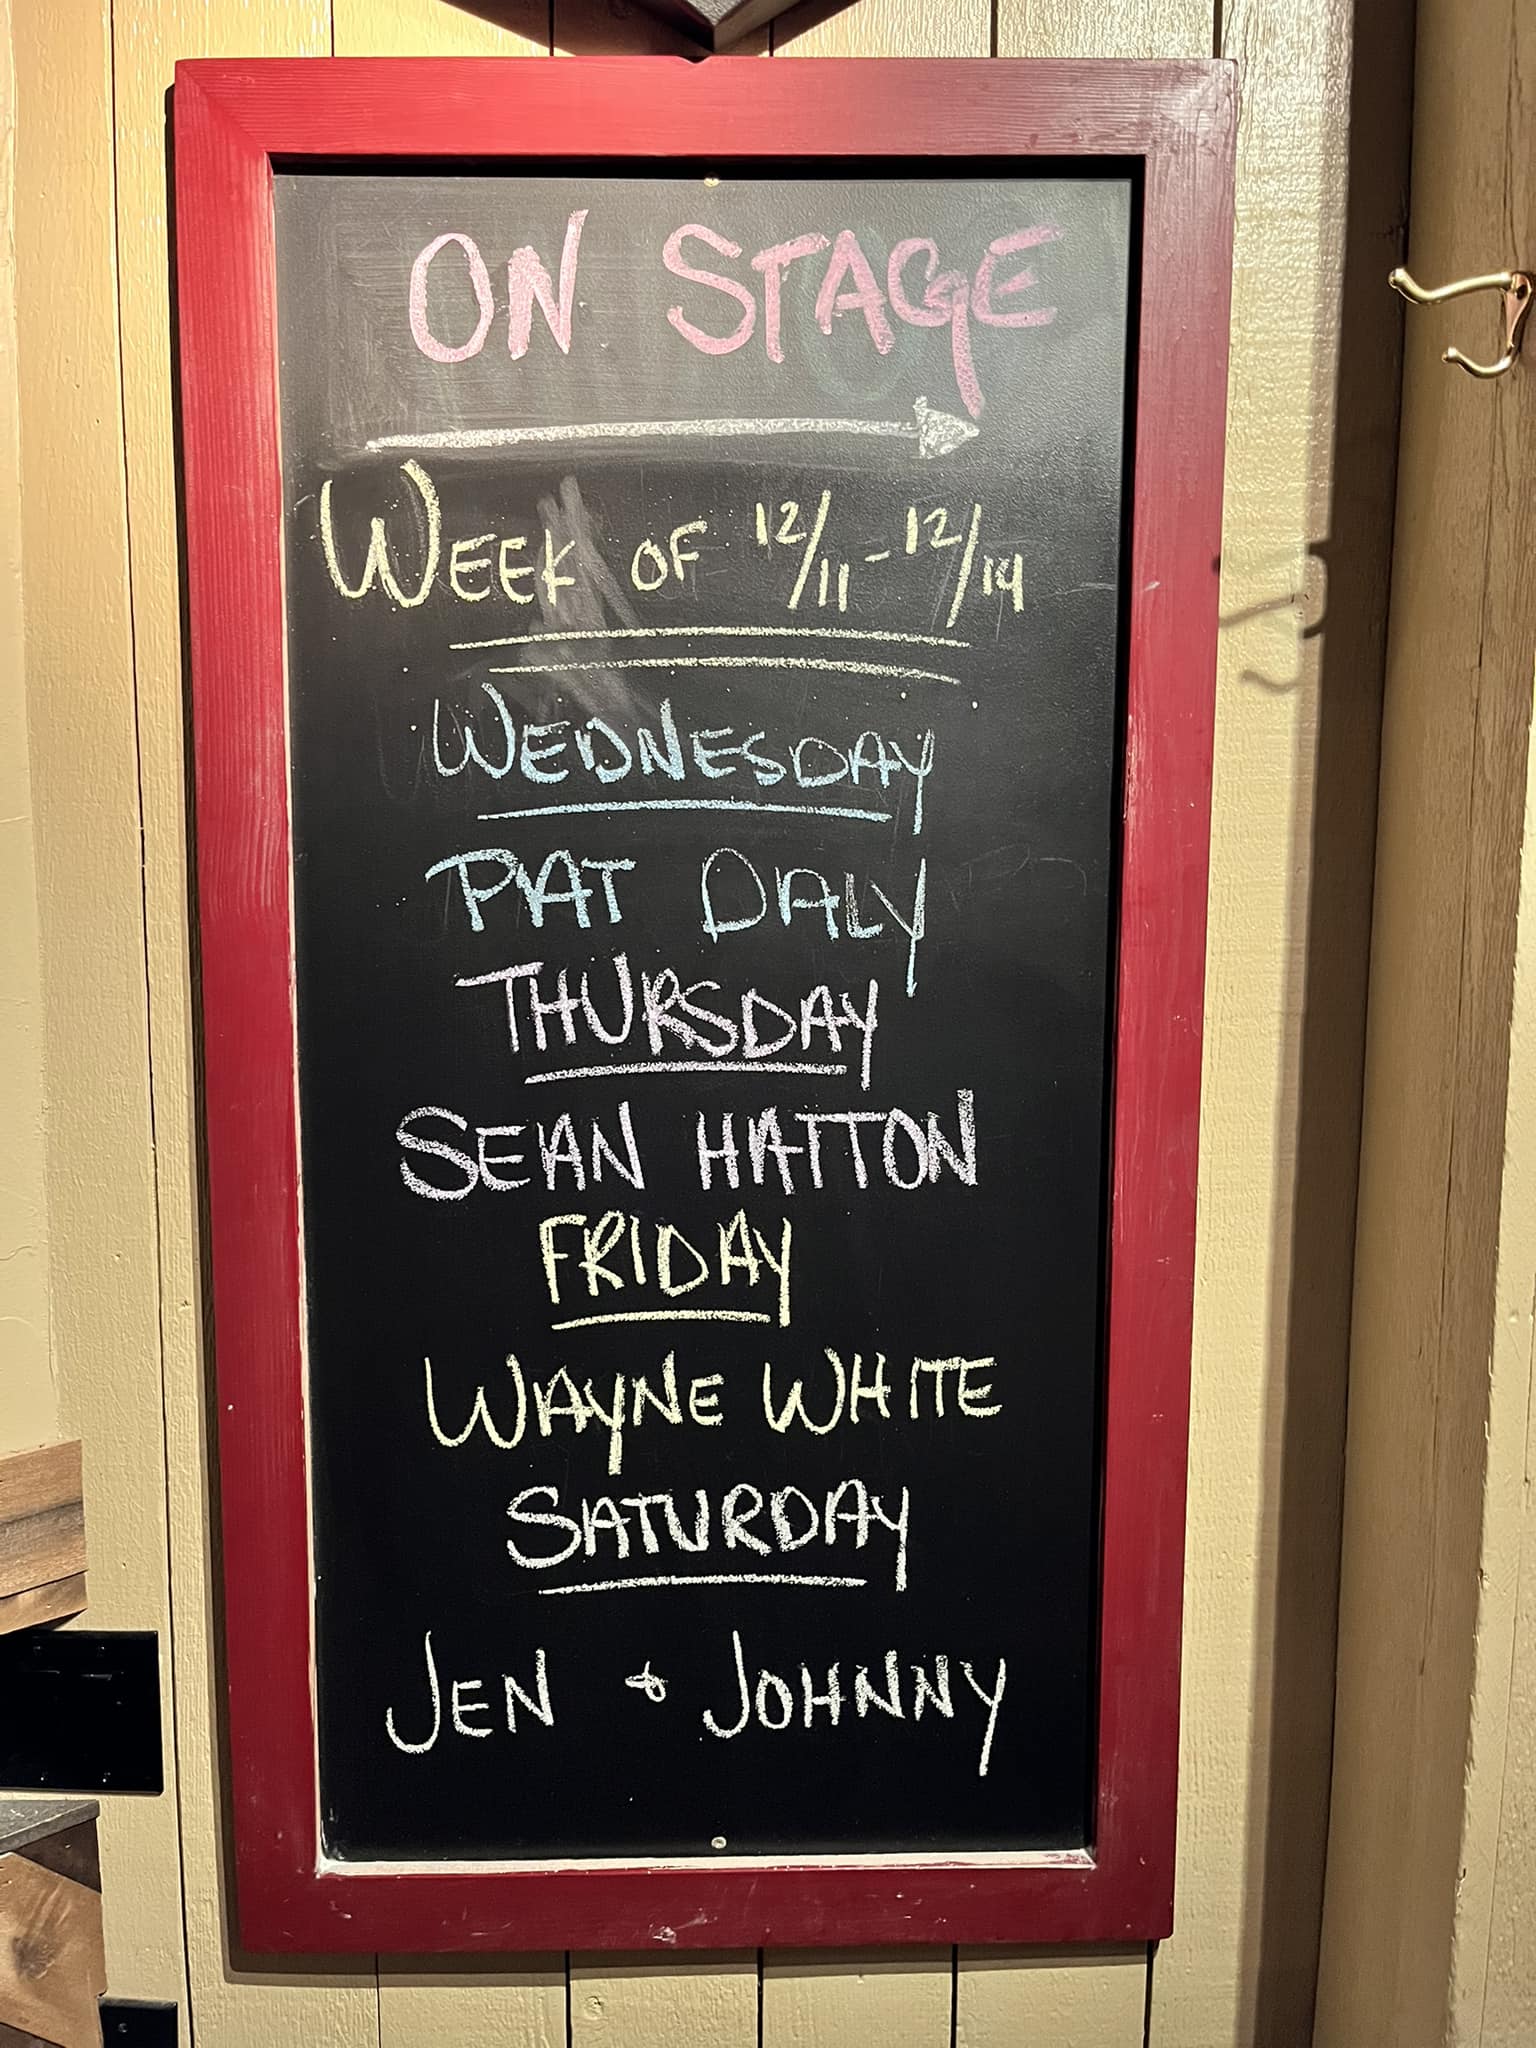 ON STAGE
WEEK OF 12/11 - 12/14
WEDNESDAY
PAT DALY
THURSDAY
SEAN HATTON
FRIDAY
WAYNE WHITE
SATURDAY
JEN & JOHNNY